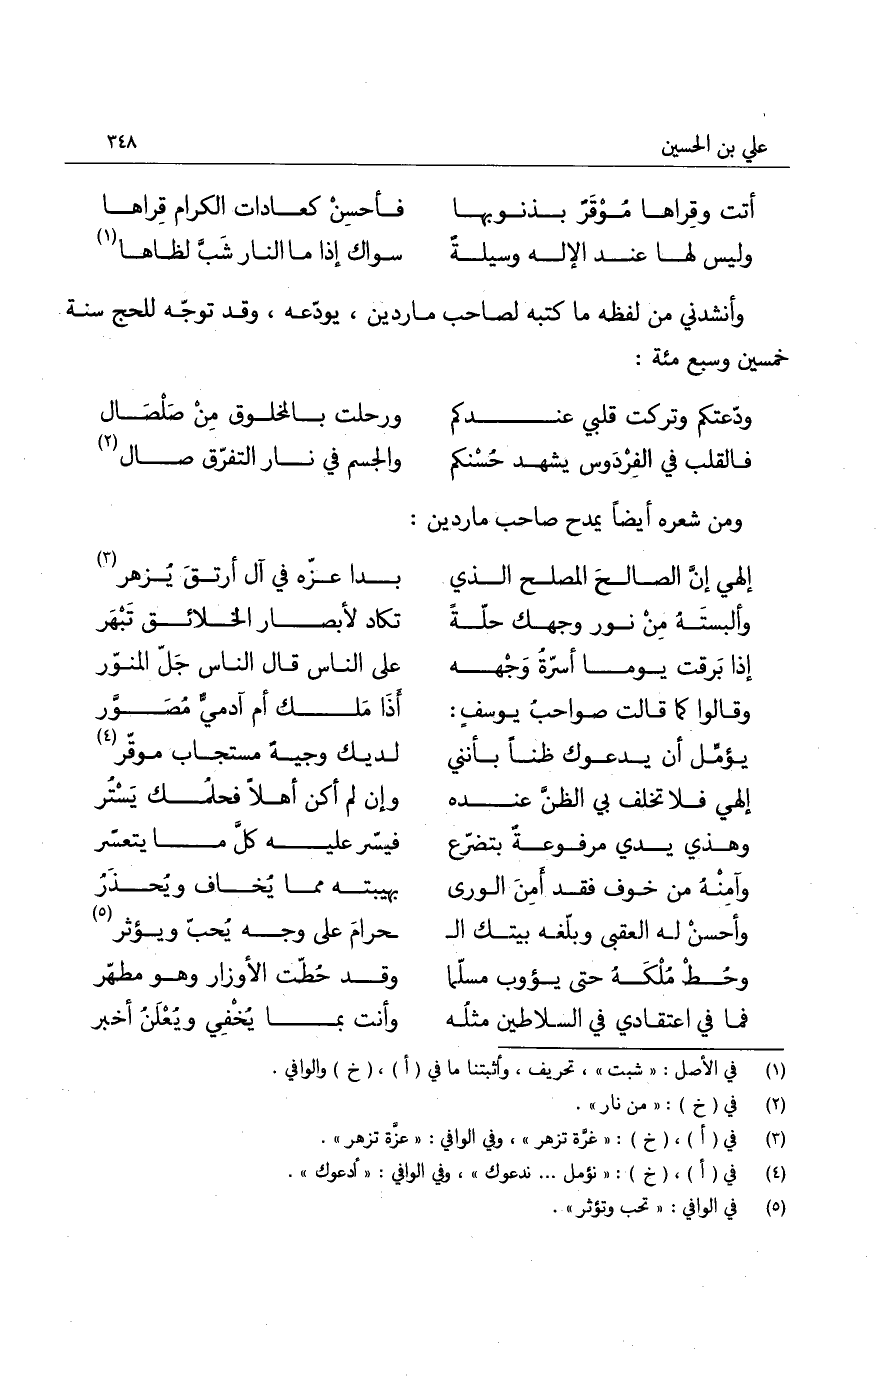 علي بن الحسين ٣٤٨
أتت وقِراها مُوْقَرٌ بذنوبها فأحسِنْ كعادات الكرام قِراها
وليس لها عند الإله وسيلةً سواك إذا ما النار شَبَّ لظاها(١)
وأنشدني من لفظه ما كتبه لصاحب ماردين ، يودّعه ، وقد توجّه للحج سنة
خمسين وسبع مئة :
ودّعتكم وتركت قلبي عندكم ورحلت بالمخلوق مِنْ صَلْصَال
فالقلب في الفِرْدَوس يشهد حُسْنكم والجسم في نار التفرّق صال(٢)
ومن شعره أيضاً يمدح صاحب ماردين :
إلهي إنَّ الصالحَ المصلح الذي بدا عزّه في آل أرتقَ يُزهر(٣)
وألبستَهُ مِنْ نور وجهك حلّةً تكاد لأبصار الخلائق تَبْهَر
إذا بَرقت يوماً أسرّةُ وَجْهه على الناس قال الناس جَلّ المنوّر
وقالوا كما قالت صواحبُ يوسفٍ: أَذَا مَلك أم آدميٌّ مُصَوَّر
يؤمّل أن يدعوك ظناً بأنني لديك وجيهٌ مستجاب موقّر(٤)
إلهي فلا تخلف بي الظنَّ عنده وإن لم أكن أهلاً فحلمُك يَسْتُر
وهذي يدي مرفوعةٌ بتضرّع فيسّر عليه كلَّ ما يتعسّر
وآمِنْهُ من خوف فقد أَمِنَ الورى بهيبته مما يُخاف ويُحذَرُ
وأحسنْ له العقبى وبلّغه بيتك الـ ـحرامَ على وجه يُحبّ ويؤثر(٥)
وحُطْ مُلْكَهُ حتى يؤوب مسلّما وقد حُطّت الأوزار وهو مطهّر
فما في اعتقادي في السلاطين مثلُه وأنت بما يُخْفي ويُعْلَنُ أخبر
(١) في الأصل : « شبت » ، تحريف ، وأثبتنا ما في ( أ ) ، ( خ ) والوافي .
(٢) في ( خ ) : « من نار » .
(٣) في ( أ ) ، ( خ ) : « غرّة تزهر » ، وفي الوافي : « عزّة تزهر » .
(٤) في ( أ ) ، ( خ ) : « نؤمل ... ندعوك » ، وفي الوافي : « أدعوك » .
(٥) في الوافي : « تحب وتؤثر » .